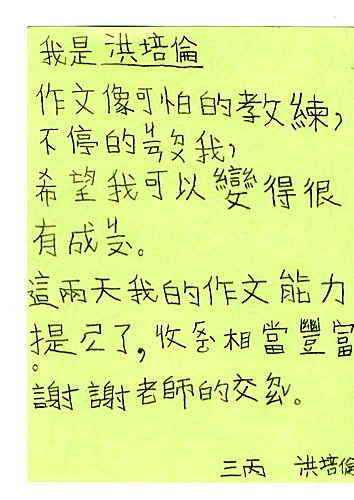 我是洪培倫
作文像可怕的教練,
不停的我,
希望我可以變得很
有成。
這兩天我的作文能力
提了,收相當豐富
。
謝謝老師的交。
三丙 洪培倫